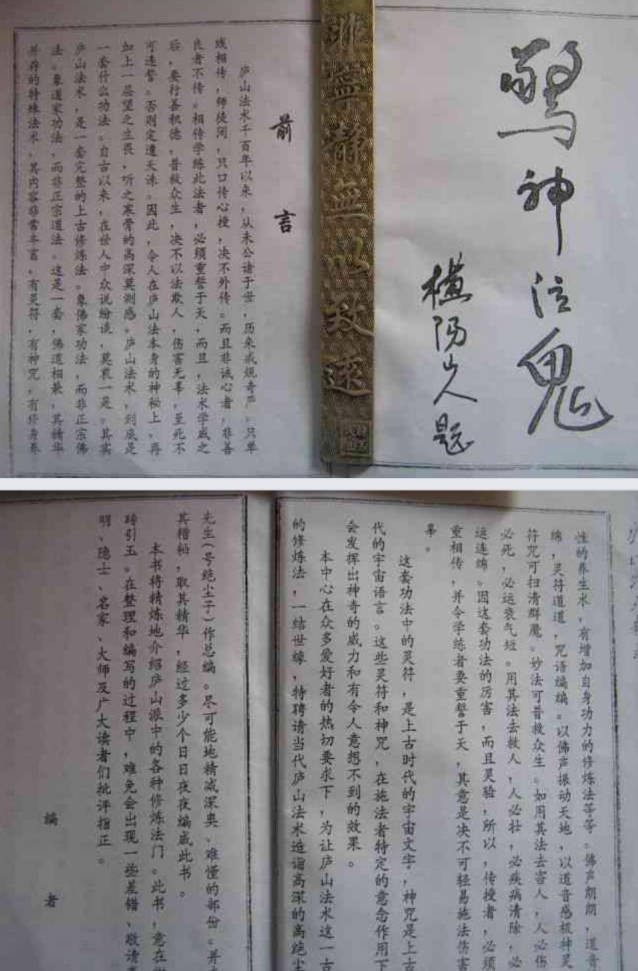 驚神泣鬼
横阳山人题
非寧静無以致遠
前言
庐山法术千百年以来，从未公诸于世，历来戒规奇严。只单
线相传，师徒间，只口传心授，决不外传。而且非诚心者，非善
良者不传。相传学练此法者，必须重誓于天，而且，法术学成之
后，要行善积德，普救众生，决不以法欺人，伤害无辜，至死不
可违誓。否则定遭天诛。因此，令人在庐山法本身的神秘上，再
加上一层望之生畏，听之寒骨的高深莫测感。庐山法术，到底是
一套什么功法。自古以来，在世人中众说纷谈，莫衷一是。其实
庐山法术，是一套完整的上古修炼法。象佛家功法，而非正宗佛
法。象道家功法，而非正宗道法。这是一套，佛道相兼，其精华
并存的特殊法术，其内容非常丰富，有灵符，有神咒，有修身养
性的养生术，有增加自身功力的修炼法等等。佛声朗朗，道音
绵，灵符道道，咒语编编。以佛声振动天地，以道音感极神灵
符咒可扫清群魔。妙法可普救众生。如用其法去害人，人必伤
必死，必运衰气短。用其法去救人，人必壮，必疾病清除，必
运连绵。因这套功法的厉害，而且灵验，所以，传授者，必须
重相传，并令学练者要重誓于天，其意是决不可轻易施法伤害
辜。
这套功法中的灵符，是上古时代的宇宙文字，神咒是上古
代的宇宙语言。这些灵符和神咒，在施法者特定的意念作用下
会发挥出神奇的威力和有令人意想不到的效果。
本中心在众多爱好者的热切要求下，为让庐山法术这一古
的修炼法，一结世缘，特聘请当代庐山法术造诣高深的高绝尘
先生（号绝尘子）作总编。尽可能地精减深奥、难懂的部份。并
其糟粕，取其精华，经过多少个日日夜夜编成此书。
本书将精炼地介绍庐山派中的各种修炼法门。此书，意在
砖引玉。在整理和编写的过程中，难免会出现一些差错、敬请
明、隐士、名家、大师及广大读者们批评指正。
编者